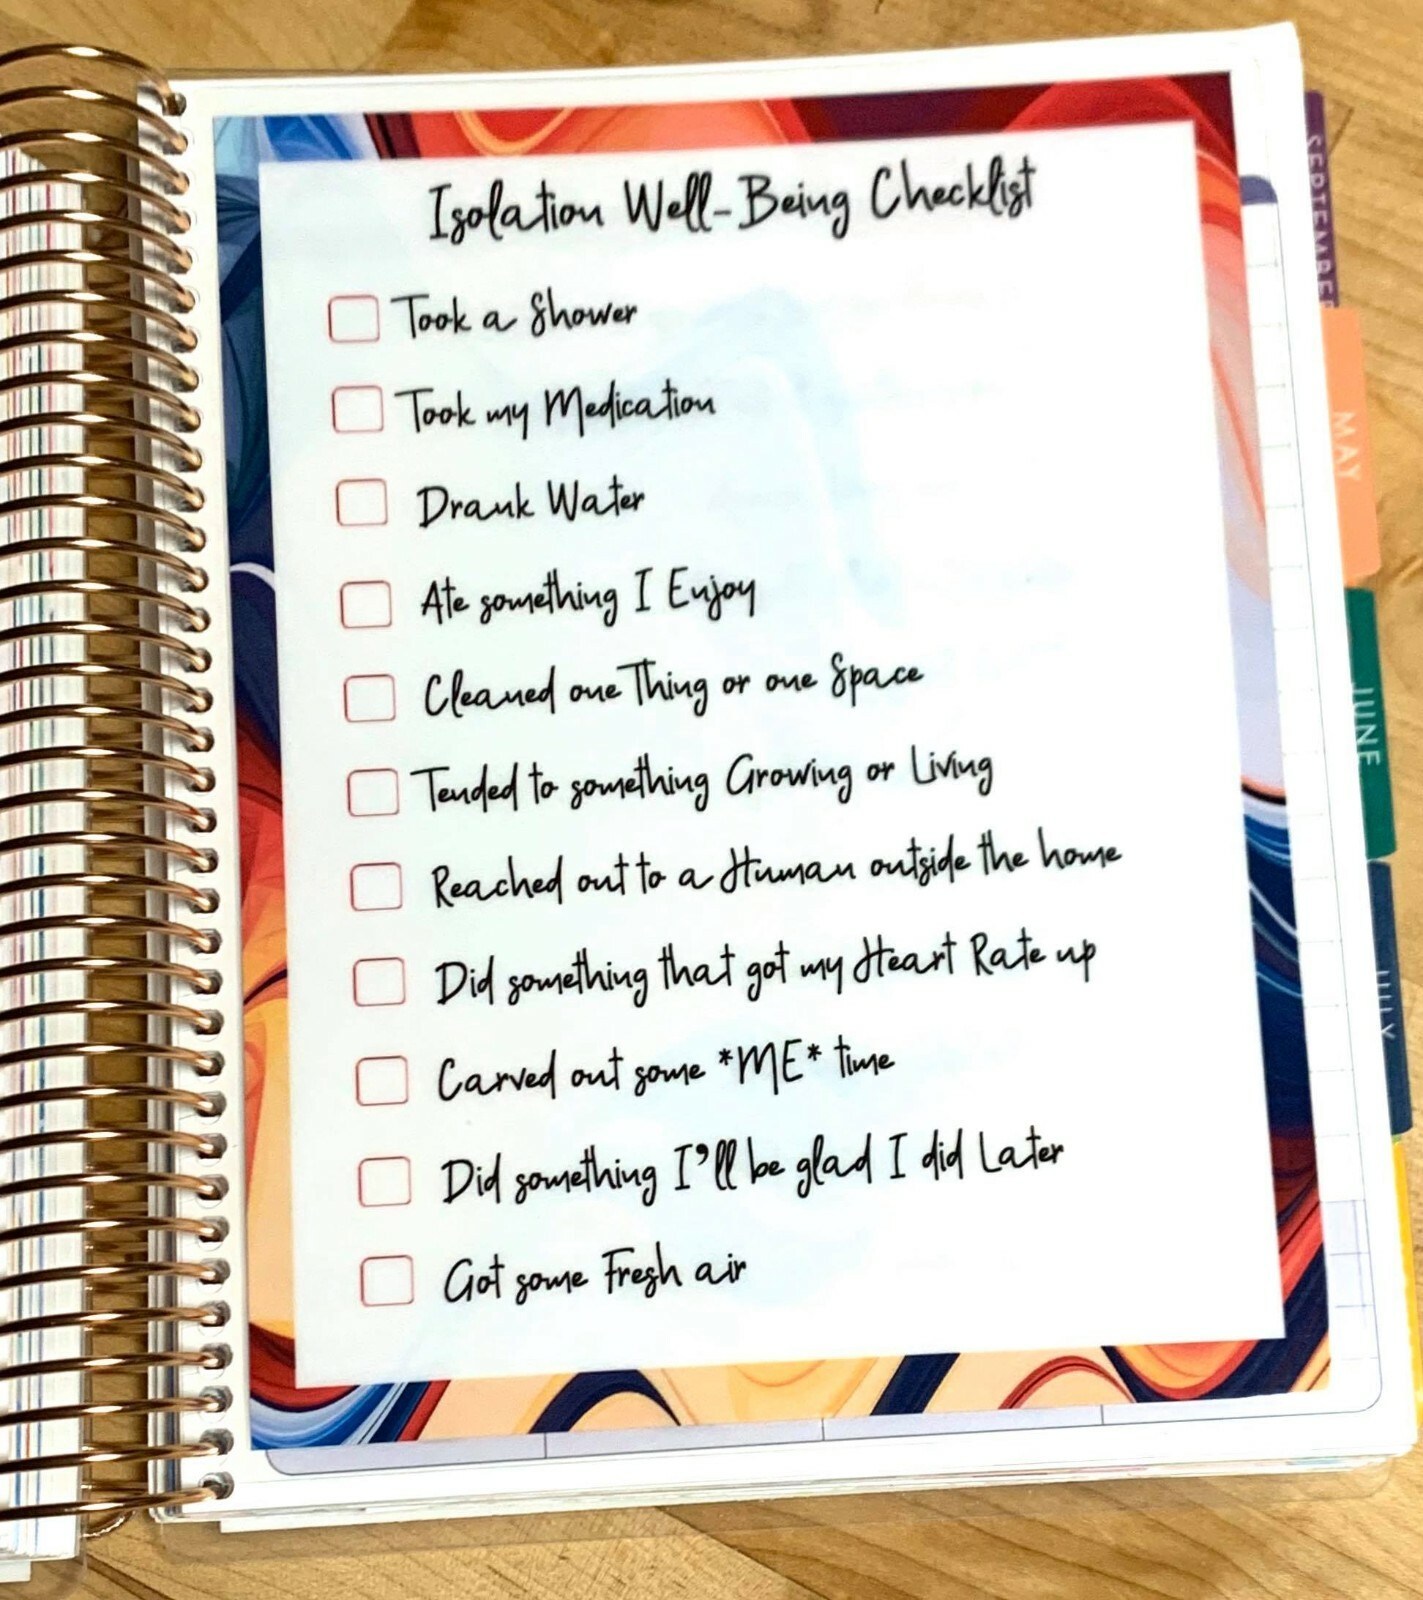 Isolation Well-Being Checklist
Took a Shower
Took my Medication
Drank Water
Ate something I Enjoy
Cleaned one Thing or one Space
Tended to something Growing or Living
Reached out to a Human outside the home
Did something that got my Heart Rate up
Carved out some *ME* time
Did something I'll be glad I did Later
Got some Fresh air
SEPTEMBER
MAY
JUNE
JULY